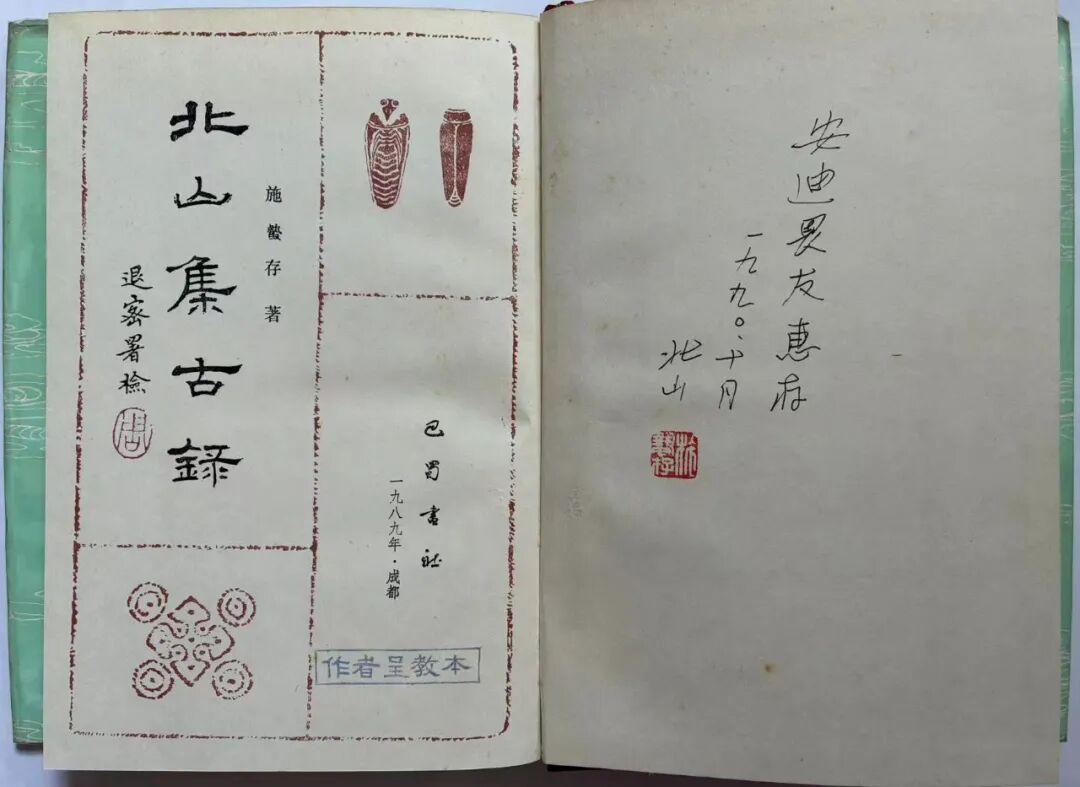 安迪畏友惠存
一九九〇、十月
北山
北山集古録
施蟄存著
退密署檢
周
巴蜀書社
一九八九年·成都
作者呈教本